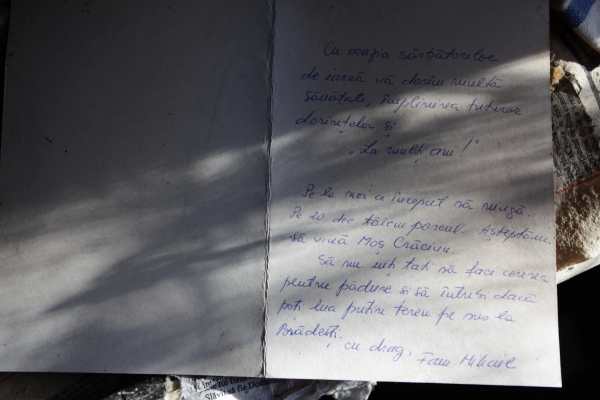 Cu ocazia sărbătorilor
de iarnă vă dorim multă
sănătate, împlinirea tuturor
dorințelor și
„La mulți ani!"
Pe la noi a început să ningă.
Pe 20 dec tăiem porcul. Așteptăm
să vină Moș Crăciun.
Să nu uiți tati să faci cererea
pentru pădure și să întrebi dacă
poți lua puțin teren pe sus la
Brădești.
cu drag, Fam. Mihail
Slăvit să fie Domnul